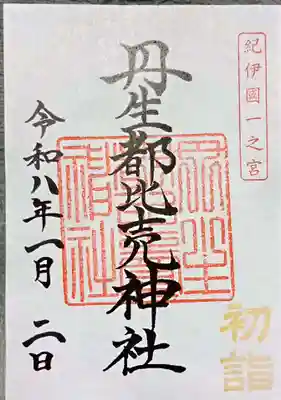 紀伊國一之宮
丹生都比売神社
令和八年一月二日
初詣